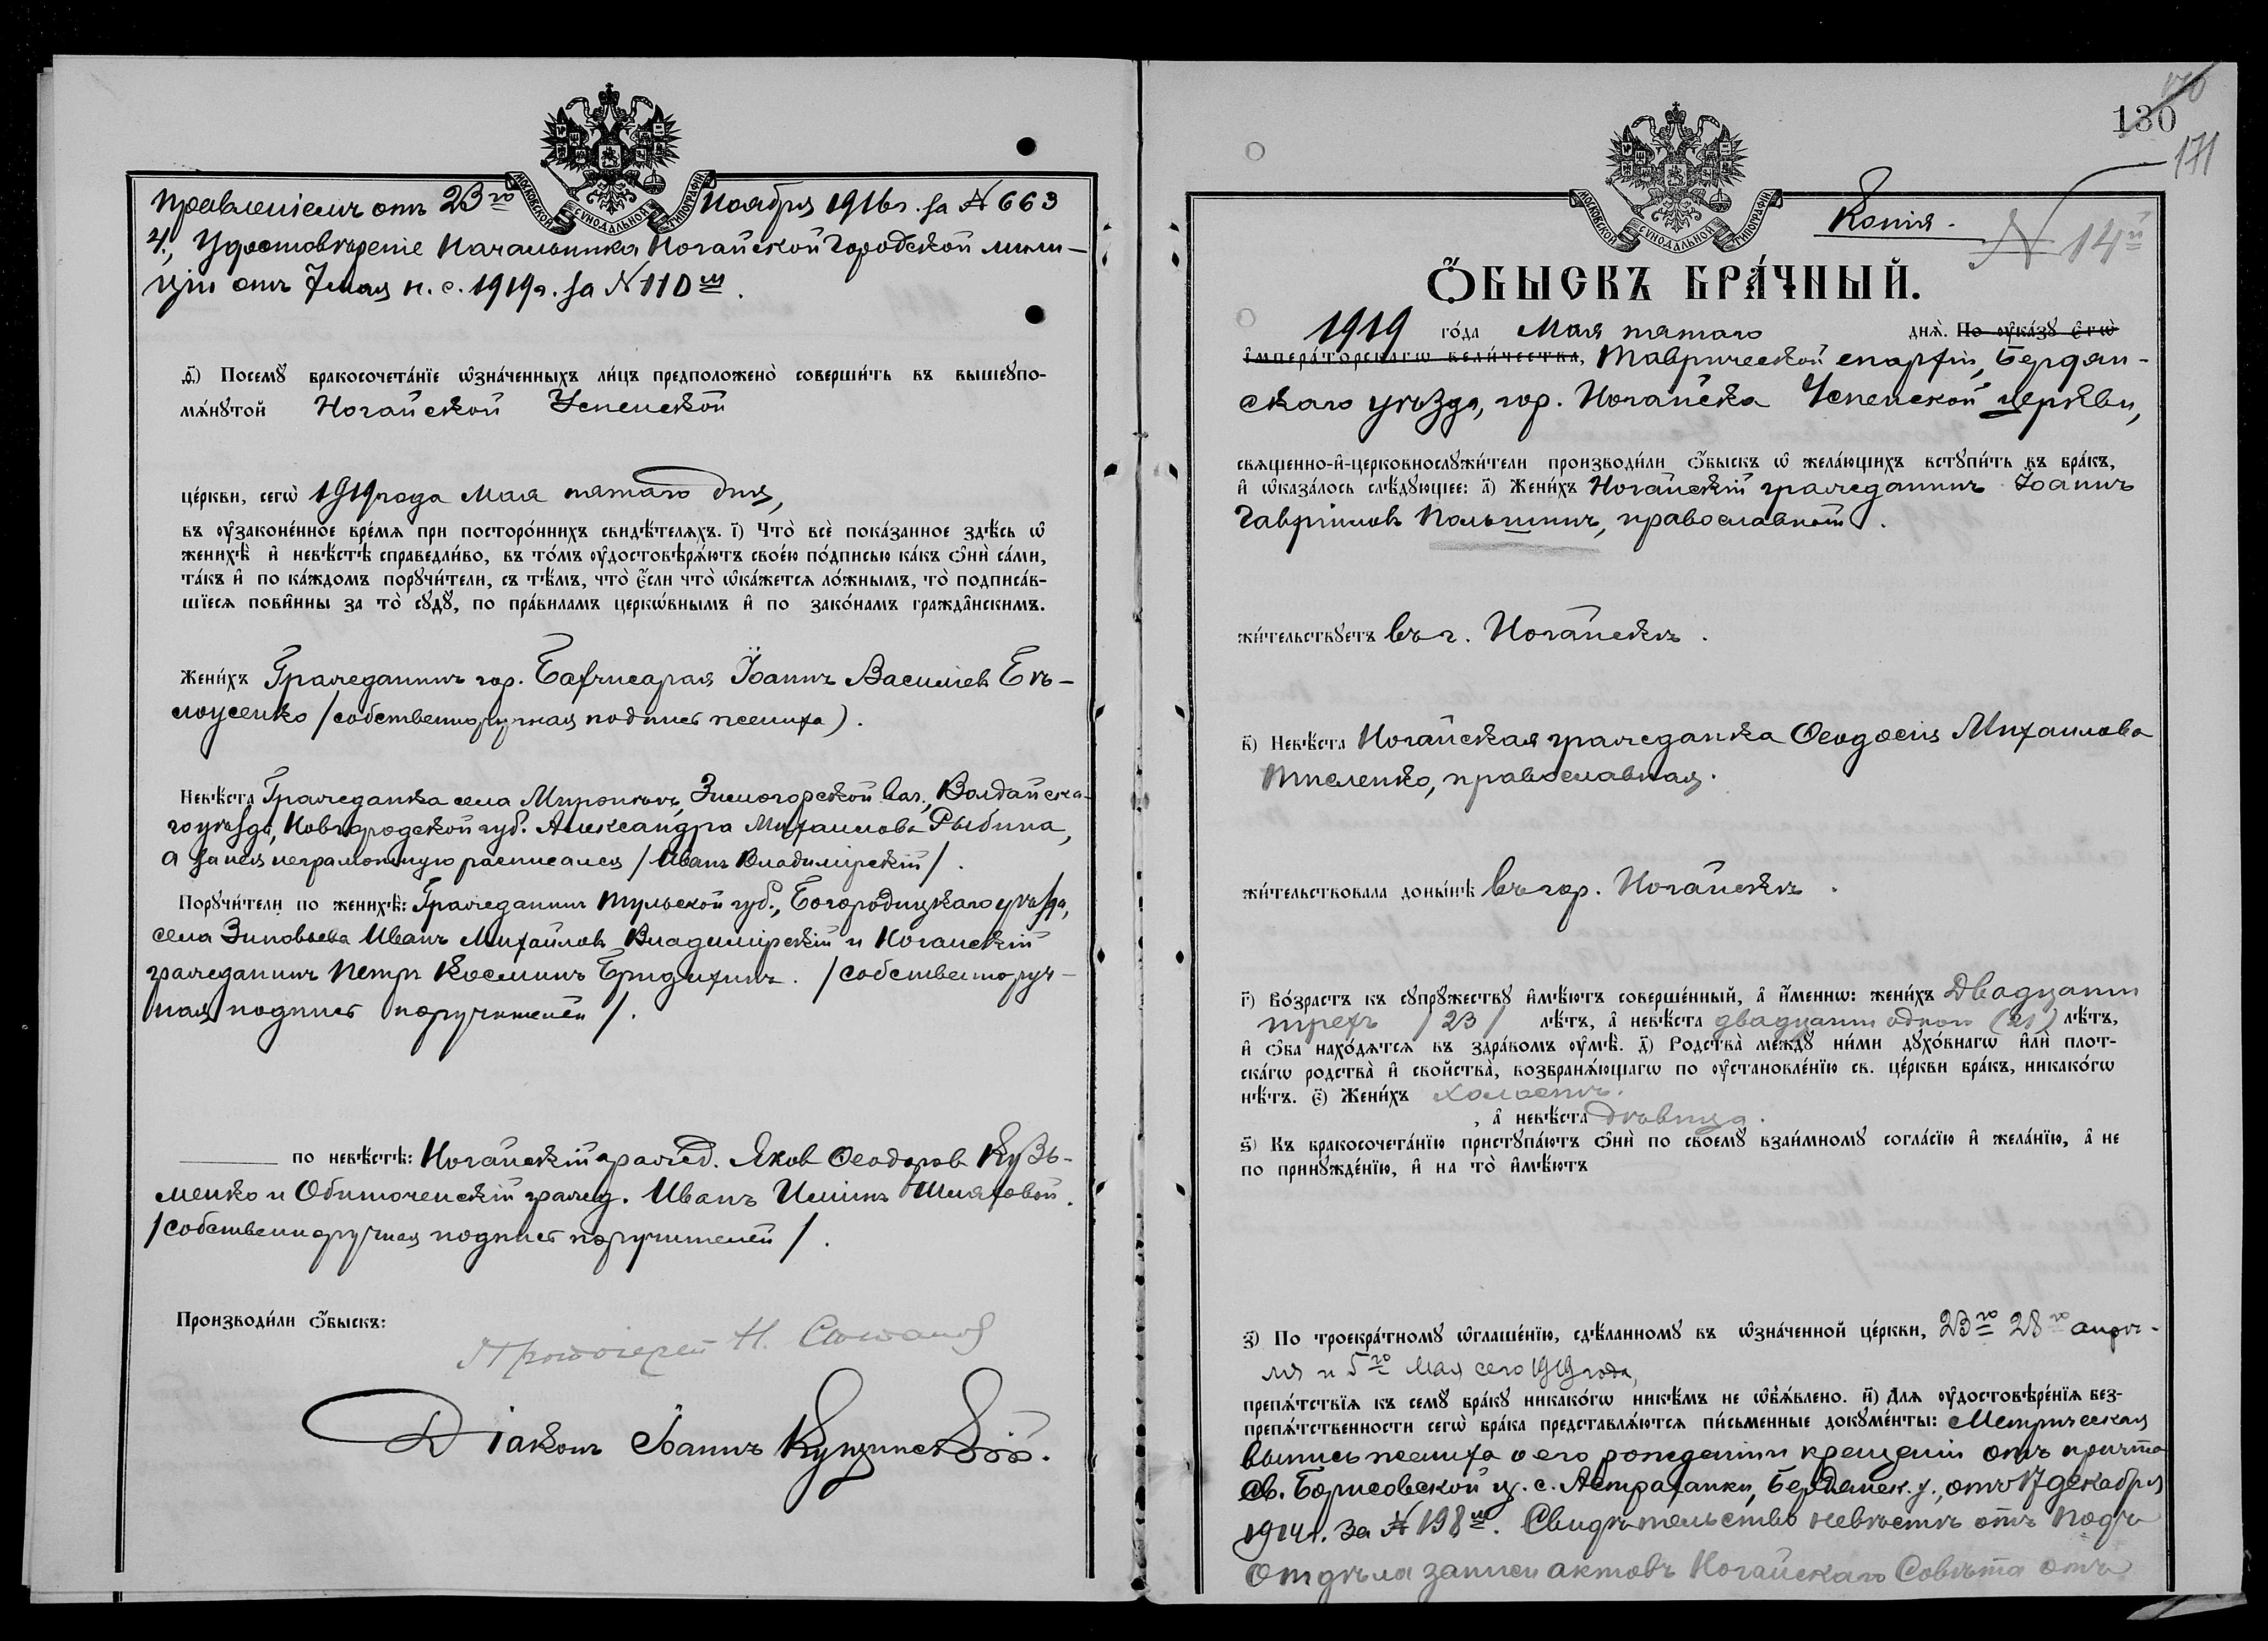 МОСКОВСКОЙ СѴНОДАЛЬНОЙ ТИПОГРАФІИ
Правленіемъ отъ 23го Ноября 1916г. за № 663
4, Удостовѣреніе Начальника Ногайской Городской мили-
ціи отъ 7 мая н. с. 1919г. за № 110м.
ѳ҃) Посемꙋ̀ бракосочета́нїе ѡ҆зна́ченныхъ ли́цъ предположено̀ соверши́ть въ вышеꙋпо-
мѧ́нꙋтой Ногайской Успенской
це́ркви, сегѡ̀ 1919 года Мая пятаго дня,
въ ᲂу҆законе́нное вре́мѧ при посторо́ннихъ свидѣ́телѧхъ. і҃) Что̀ всѐ пока́занное здѣ́сь ѡ҆
женихѣ̀ и҆ невѣ́стѣ справедли́во, въ то́мъ ᲂу҆достовѣрѧ́ютъ свое́ю по́дписью ка́къ ѻ҆нѝ са́ми,
та́къ и҆ по ка́ждомъ порꙋчи́тели, съ тѣ́мъ, что̀ є҆́сли что̀ ѡ҆ка́жетсѧ ло́жнымъ, то̀ подписа́в-
шїесѧ пови́нны за то̀ сꙋдꙋ̀, по пра́виламъ церкѡ́внымъ и҆ по зако́намъ гражда́нскимъ.
Жени́хъ Гражданинъ гор. Бахчисарая Іоаннъ Василіев Бѣ-
лоусенко /собственноручная подпись жениха).
Невѣ́ста Гражданка села Миронѣгъ, Зимогорской вол., Волдайска-
го уѣзда, Новгородской губ. Александра Михаилова Рыбина,
а за нея неграмотную расписался /Иванъ Владимірскій/.
Порꙋчи́тели по женихѣ̀: Гражданинъ Тульской губ., Богородицкаго уѣзда,
села Зиновьева Иванъ Михайловъ Владимірскій и Ногайскій
гражданинъ Петръ Косминъ /собственноруч-
ная подпись поручителей/.
по невѣ́стѣ: Ногайскій гражд. Яков Ѳеодоров Кузь-
менко и Обиточенскій гражд. Иванъ Ильинъ Шляховой.
/собственноручная подпись поручителей/.
Производи́ли ѻ҆́быскъ:
Протоіерей Н.
Діаконъ Іоаннъ
130
171
МОСКОВСКОЙ СѴНОДАЛЬНОЙ ТИПОГРАФІИ
Копія.
N 14й
Ѻ҆́БЫСКЪ БРА́ЧНЫЙ.
1919 го́да Мая пятаго днѧ̀. По ᲂу҆ка́зꙋ є҆гѡ̀
и҆мпера́торскагѡ вели́чества, Таврической епархіи, Бердян-
скаго уѣзда, гор. Ногайска Успенской церкви,
свѧщенно-и҆-церковнослꙋжи́тели производи́ли ѻ҆́быскъ ѡ҆ жела́ющихъ встꙋпи́ть въ бра́къ,
и҆ ѡ҆каза́лось слѣ́дꙋющее: а҃) Жени́хъ Ногайскій гражданинъ Іоаннъ
Гавріиловъ Польшинъ, православный.
жи́тельствꙋетъ въ г. Ногайскѣ.
в҃) Невѣ́ста Ногайская гражданка Ѳеодосія Михаилова
Тисленко, православная.
жи́тельствовала доны́нѣ въ гор. Ногайскѣ.
г҃) Во́зрастъ къ сꙋпрꙋ́жествꙋ и҆мѣ́ютъ соверше́нный, а҆ и҆́меннѡ: жени́хъ двадцати
трехъ /23/ лѣ́тъ, а҆ невѣ́ста двадцати одной (21) лѣ́тъ,
и҆ ѻ҆́ба нахо́дѧтсѧ въ здра́вомъ ᲂу҆мѣ̀. д҃) Родства̀ междꙋ̀ ни́ми дꙋхо́внагѡ и҆лѝ плот-
ска́гѡ родства̀ и҆ свойства̀, возбранѧ́ющагѡ по ᲂу҆становле́нїю св. це́ркви бра́къ, никако́гѡ
нѣ́тъ. є҃) Жени́хъ холостъ.
, а҆ невѣ́ста дѣвица.
ѕ҃) Къ бракосочета́нїю пристꙋпа́ютъ ѻ҆нѝ по своемꙋ̀ взаи́мномꙋ согла́сїю и҆ жела́нїю, а҆ не
по принꙋжде́нїю, и҆ на то̀ и҆мѣ́ютъ
з҃) По троекра́тномꙋ ѡ҆глаше́нїю, сдѣ́ланномꙋ въ ѡ҆зна́ченной це́ркви, 23го 28го апрѣ-
ля и 5го мая сего 1919 года,
препѧ́тствїѧ къ семꙋ̀ бра́кꙋ никако́гѡ никѣ́мъ не ѡ҆б̾ѧ́влено. и҃) Длѧ̀ ᲂу҆достовѣре́нїѧ без-
препѧ́тственности сегѡ̀ бра́ка представлѧ́ютсѧ пи́сьменные докꙋме́нты: Метрическая
выпись жениха о его рожденіи и крещеніи отъ причта
св. Борисовской ц. с. Астраханки, Бердянск. у., отъ 17 декабря
1914г. за № 198м. Свидѣтельство невѣсты отъ Подъ
Отдѣла записи актовъ Ногайскаго Совѣта отъ